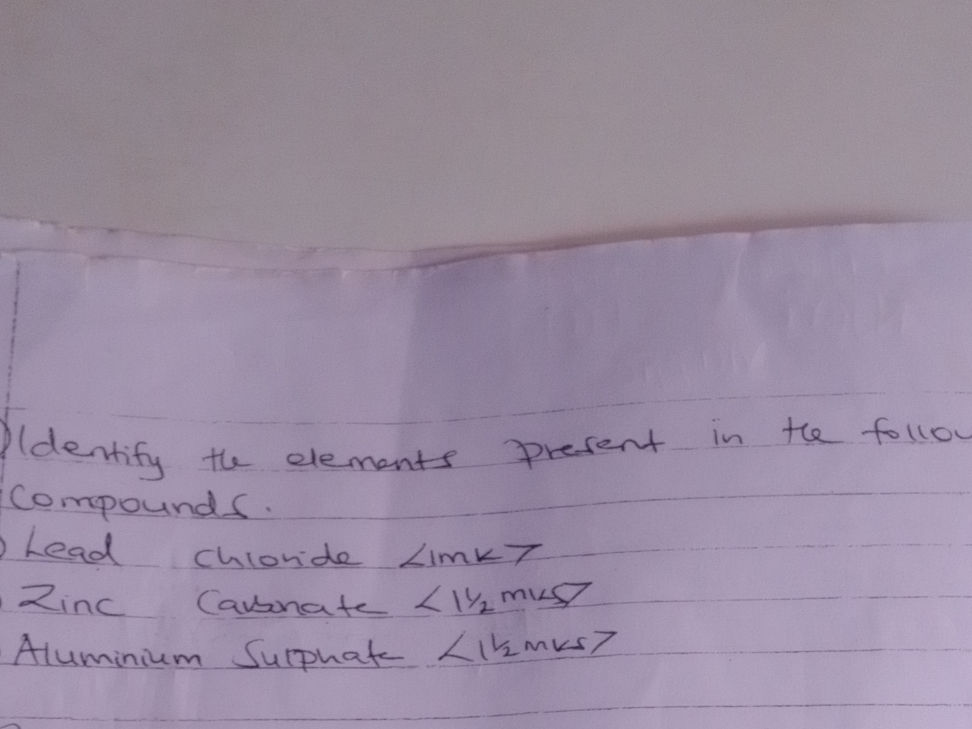 ) Identify the elements present in the follow
Compounds.
) Lead chloride <1mk>
Zinc Carbonate <1½ mks>
Aluminium Sulphate <1½mks>